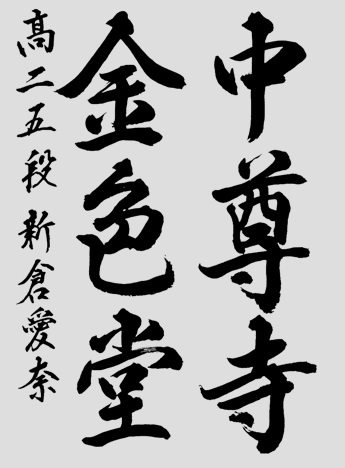 中尊寺
金色堂
高二五段 新倉愛奈